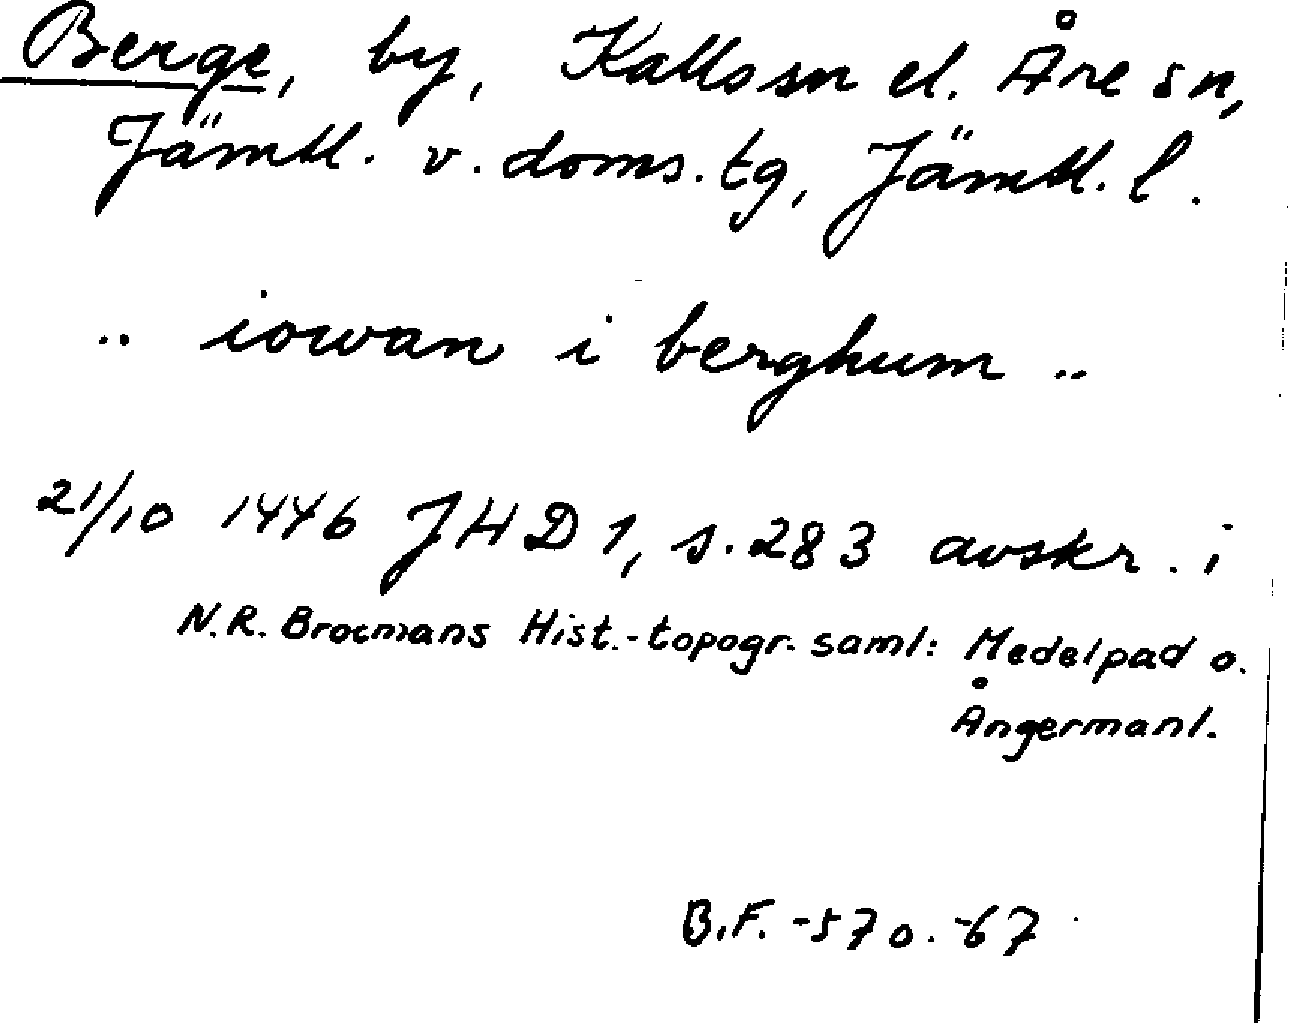 Berge, by, Kalls sn el. Åre sn,
Jämtl. v. doms. tg, Jämtl. l.
.. iowan i berghum ..
21/10 1446 JHD 1, s. 283 avskr. i
N.R. Brocmans Hist.-topogr. saml: Medelpad o.
Ångermanl.
B.F. -57 o. -67